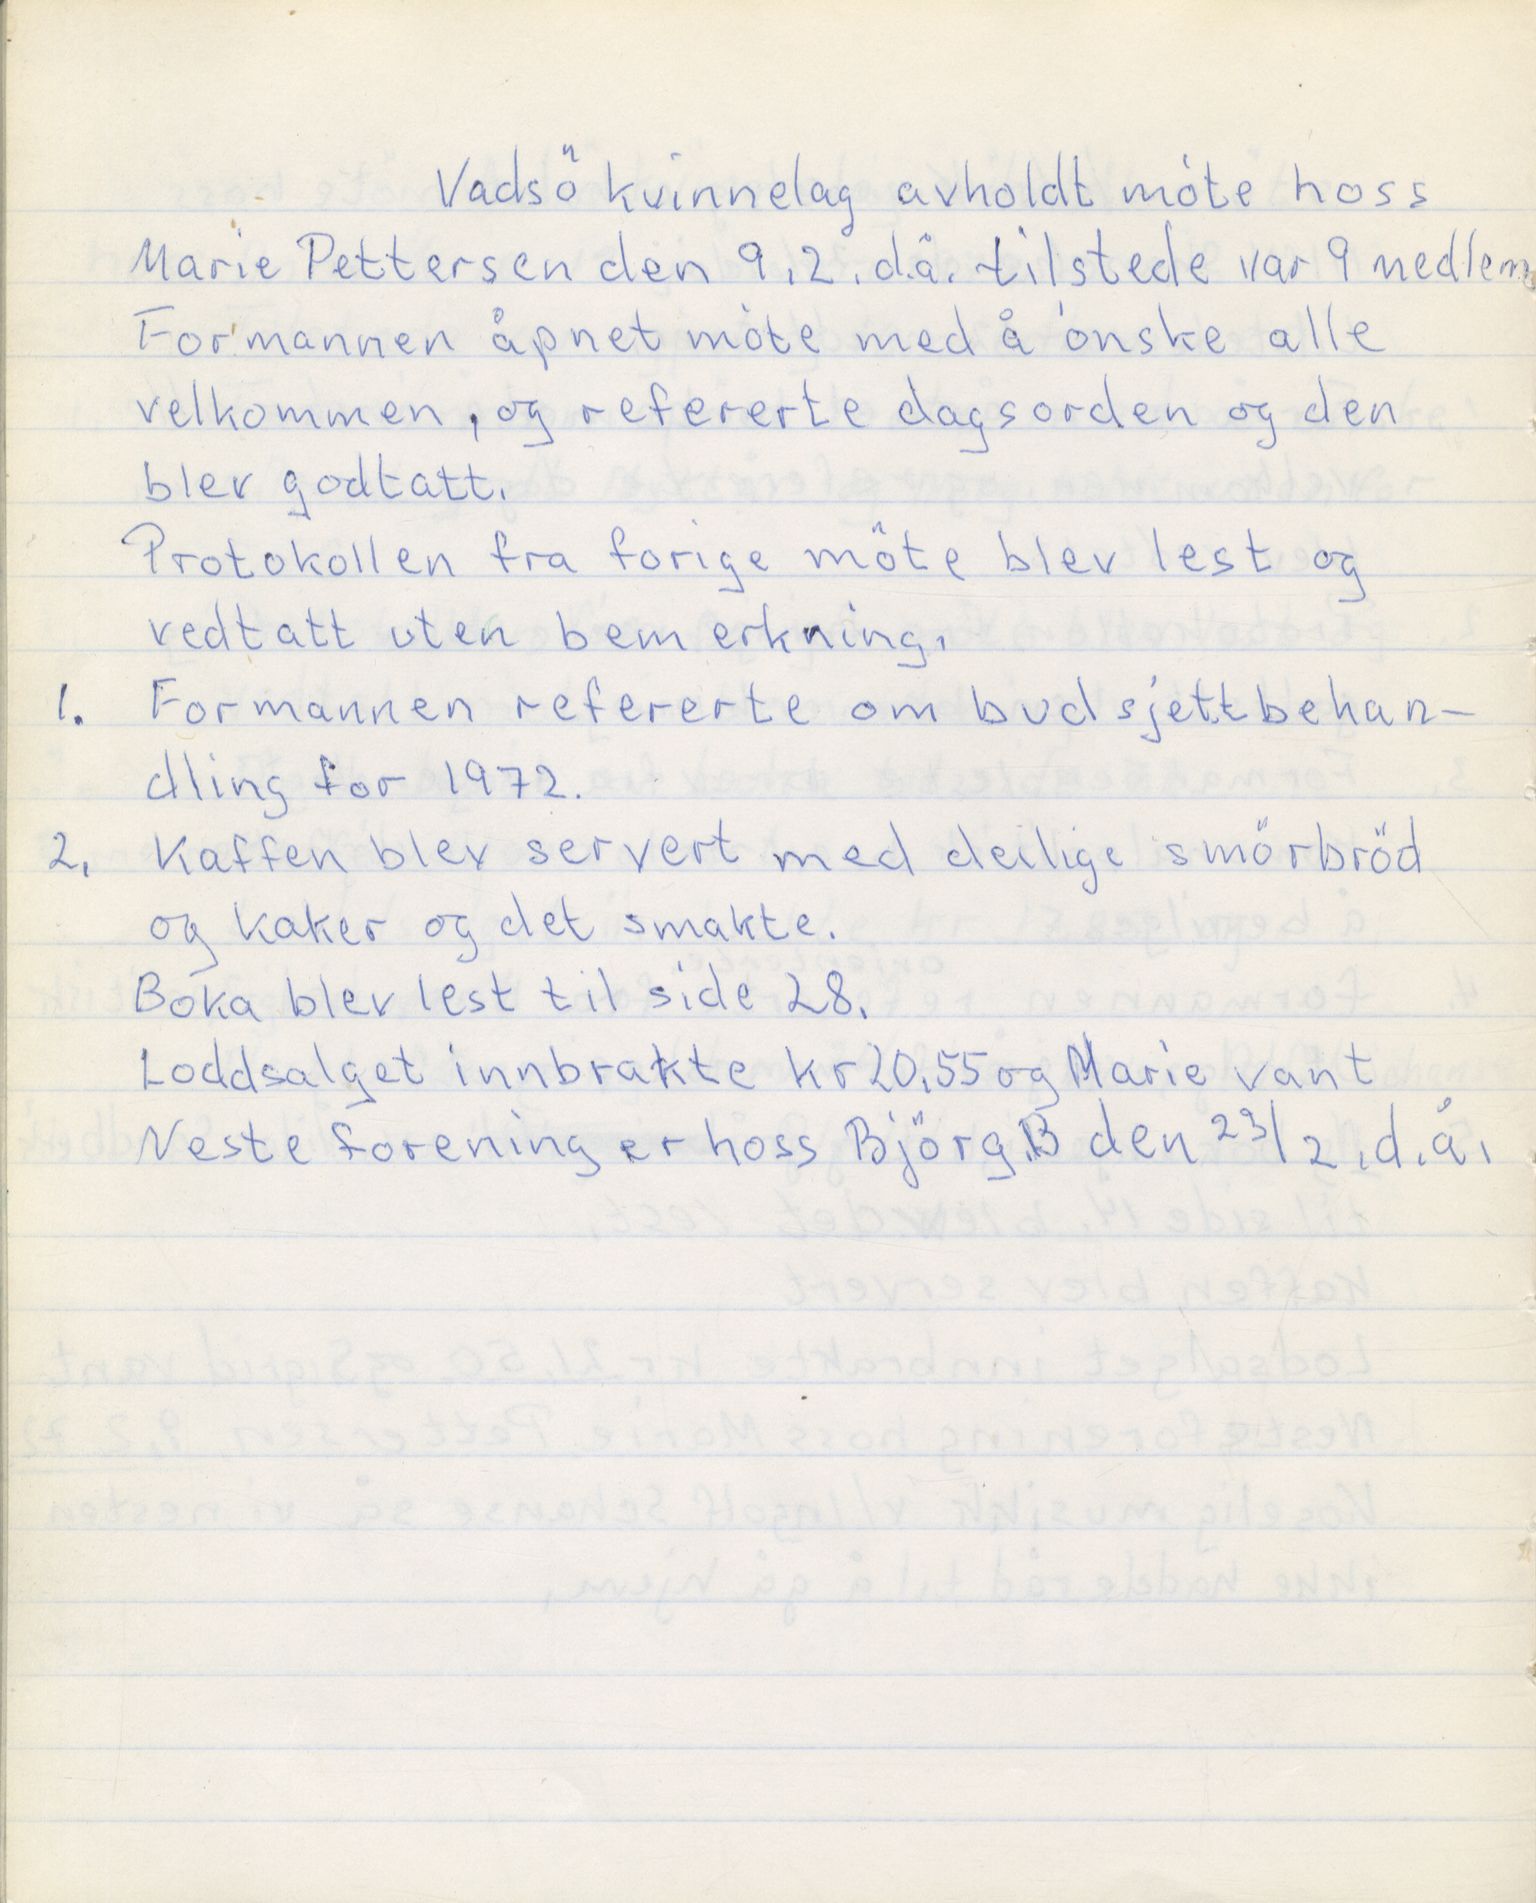 Vadsö kvinnelag avholdt möte hoss
Marie Pettersen den 9.2. d.å. tilstede var 9 medlem
Formannen åpnet möte med å önske alle
velkommen, og refererte dagsorden og den
blev godtatt.
Protokollen fra forige möte blev lest og
vedtatt uten bemerkning.
1. Formannen refererte om budsjettbehan-
dling for 1972.
2. Kaffen blev servert med deilige smörbröd
og kaker og det smakte.
Boka blev lest til side 28.
Loddsalget innbrakte kr 20,55 og Marie vant
Neste forening er hoss Björg.B den 23/2. d.å.